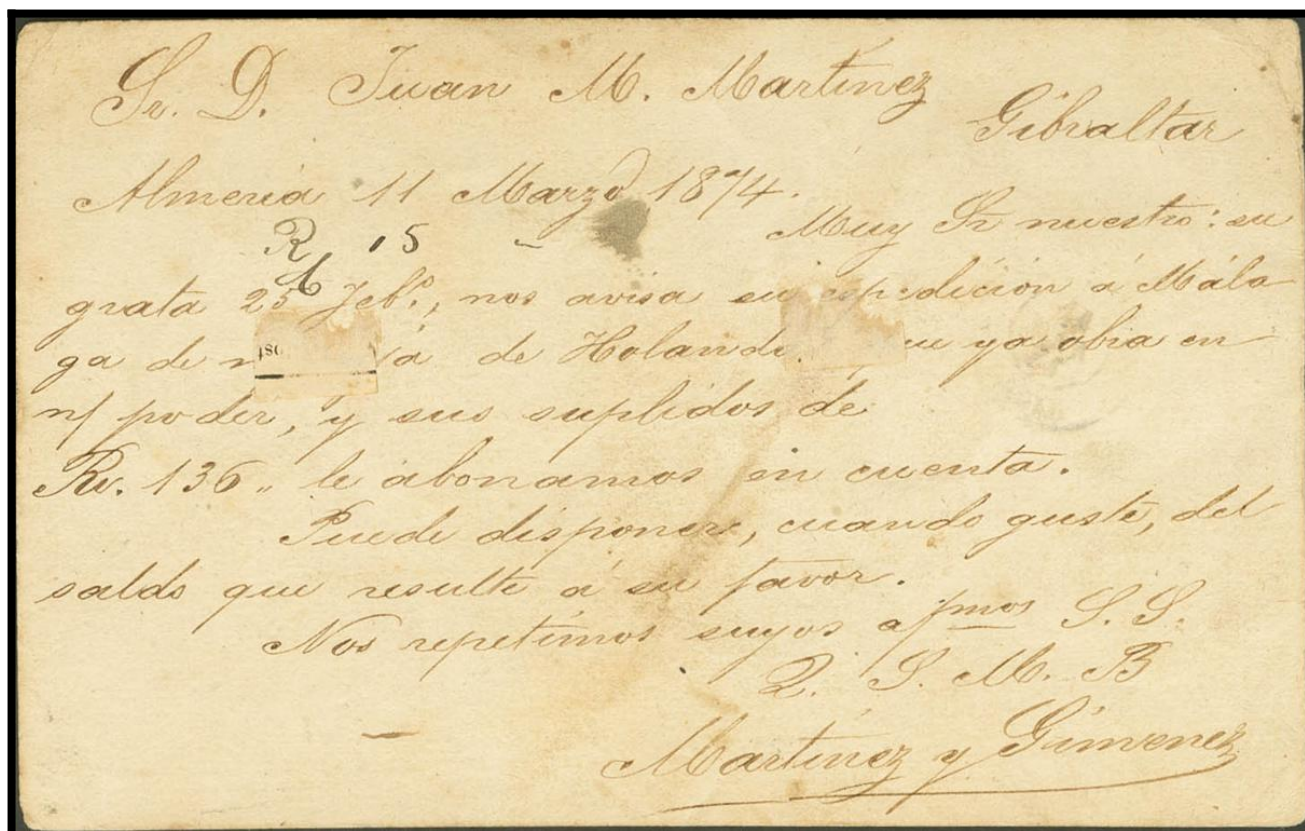 Sr. D. Juan M. Martinez
Gibraltar
Almeria 11 Marzo 1874.
R 15
Muy Sr nuestro: su
grata 25 Feb.º, nos avisa su espedición á Mála-
ga de de Holanda que ya obra en
n/ poder, y sus suplidos de
Rv. 136 „ le abonamos en cuenta.
Puede disponer, cuando guste, del
saldo que resulte á su favor.
Nos repetimos suyos afmos S. S.
Q. S. M. B
Martinez y Gimenez